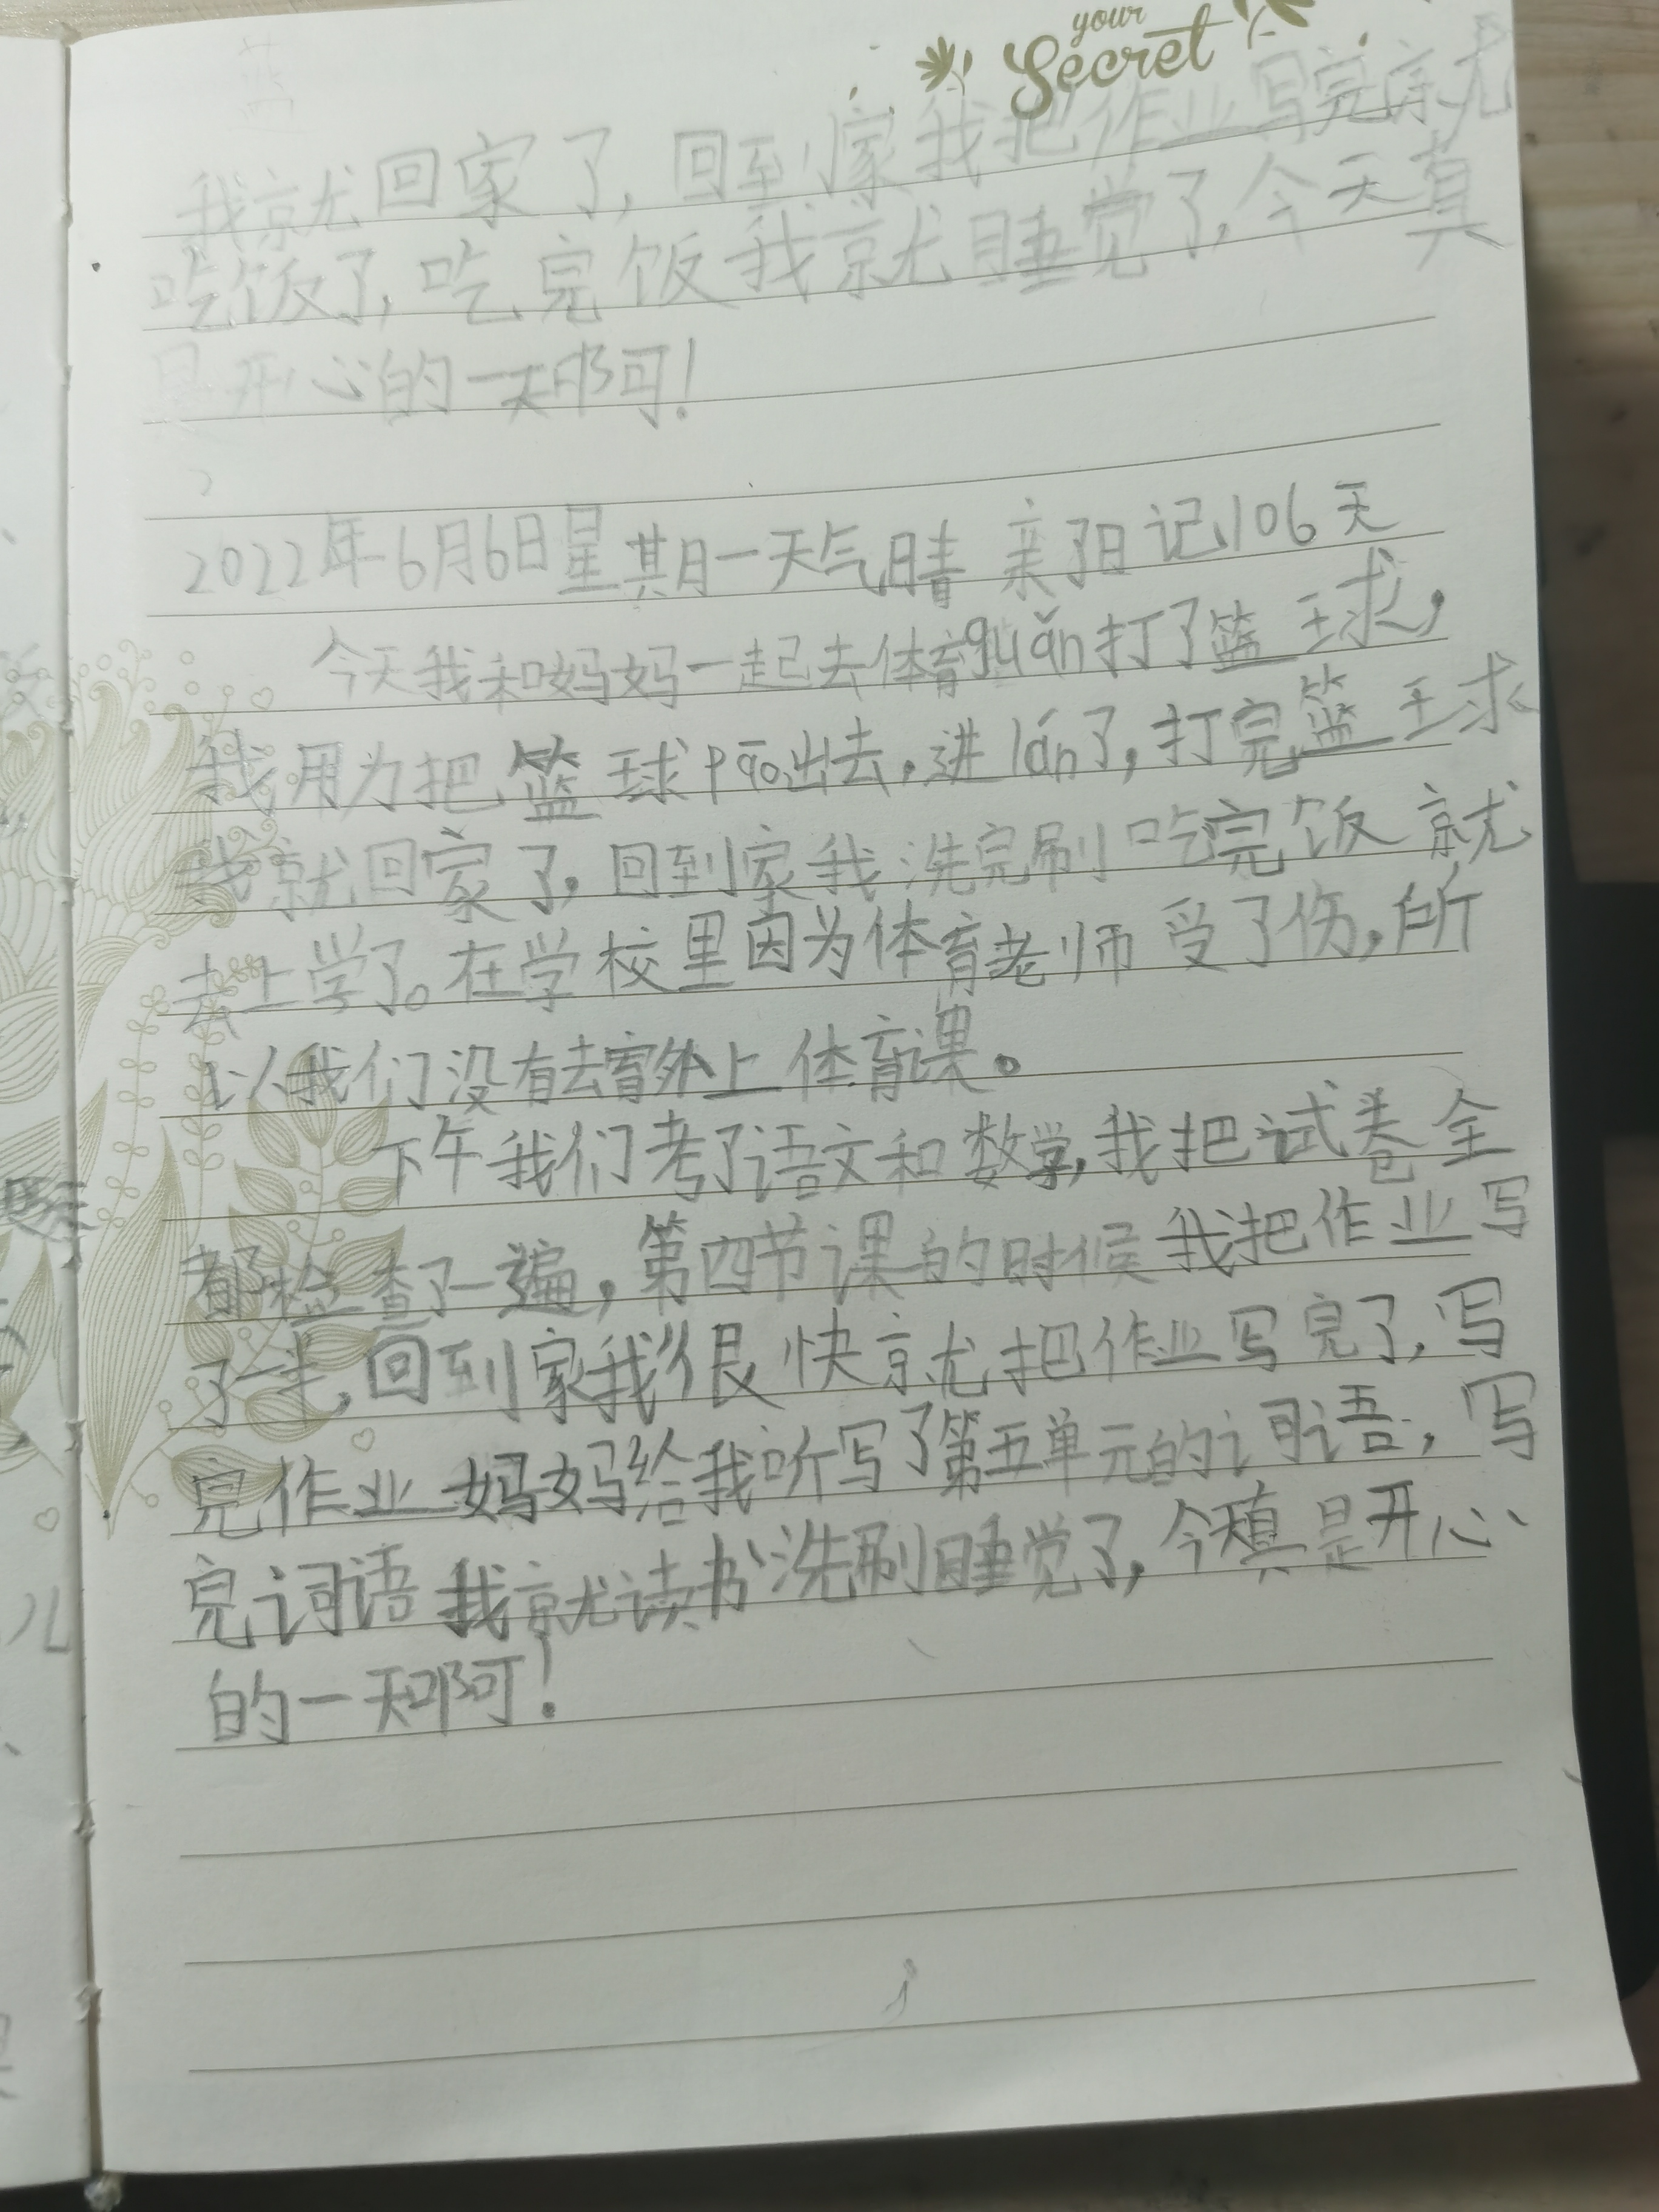 your
Secret
我就回家了，回到家我把作业写完就
吃饭了，吃完饭我就睡觉了，今天真
是开心的一天啊！
2022年6月6日星期一天气晴 亲阳记106天
今天我和妈妈一起去体育guǎn打了篮球，
我用力把篮球pāo出去，进lán了，打完篮球
我就回家了，回到家我洗完刷吃完饭就
去上学了。在学校里因为体育老师受了伤，所
以我们没有去窗外上体育课。
下午我们考了语文和数学，我把试卷全
都检查了一遍，第四节课的时候我把作业写
了一半，回到家我很快就把作业写完了，写
完作业妈妈给我听写了第五单元的词语，写
完词语我就读书洗刷睡觉了，今天真是开心
的一天啊！